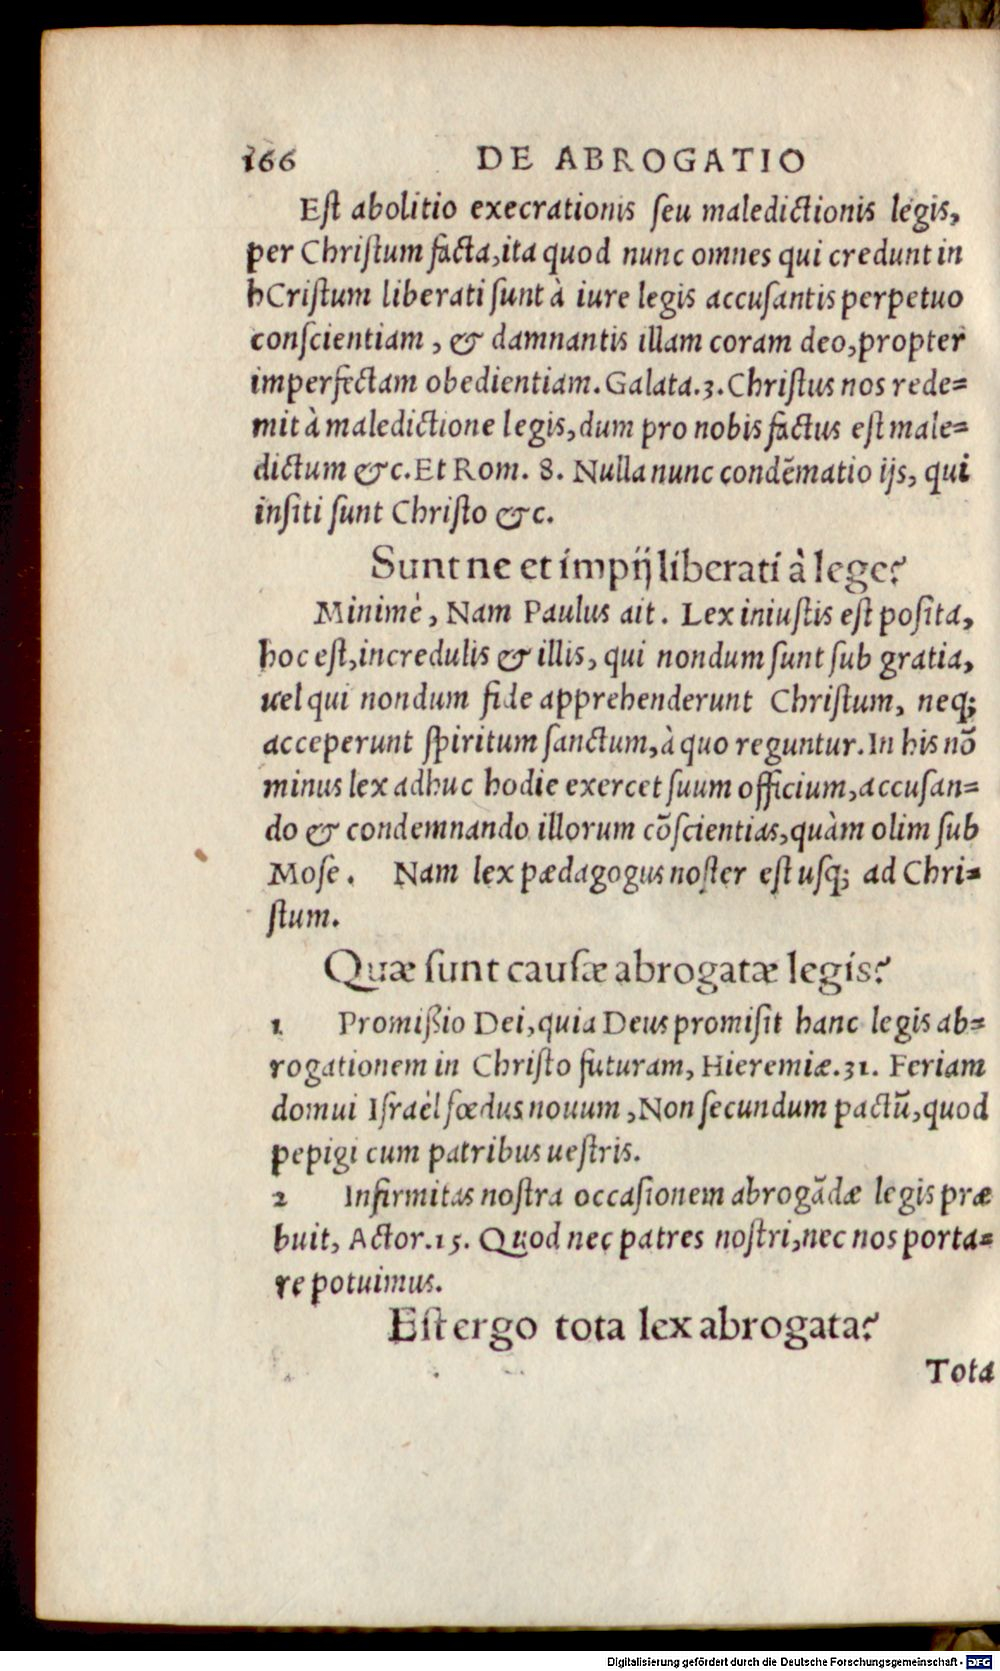 166 DE ABROGATIO
Est abolitio execrationis seu maledictionis legis,
per Christum facta, ita quod nunc omnes qui credunt in
hCristum liberati sunt à iure legis accusantis perpetuo
conscientiam, & damnantis illam coram deo, propter
imperfectam obedientiam. Galata.3. Christus nos rede=
mit à maledictione legis, dum pro nobis factus est male=
dictum &c. Et Rom. 8. Nulla nunc condēmatio ijs, qui
insiti sunt Christo &c.
Sunt ne et impij liberati à lege?
Minimè, Nam Paulus ait. Lex iniustis est posita,
hoc est, incredulis & illis, qui nondum sunt sub gratia,
uel qui nondum fide apprehenderunt Christum, neq;
acceperunt spiritum sanctum, à quo reguntur. In his nō
minus lex adhuc hodie exercet suum officium, accusan=
do & condemnando illorum cōscientias, quàm olim sub
Mose. Nam lex pædagogus noster est usq; ad Chri=
stum.
Quæ sunt causæ abrogatæ legis?
1 Promißio Dei, quia Deus promisit hanc legis ab=
rogationem in Christo futuram, Hieremiæ.31. Feriam
domui Israël fœdus nouum, Non secundum pactū, quod
pepigi cum patribus uestris.
2 Infirmitas nostra occasionem abrogādæ legis præ
buit, Actor.15. Quod nec patres nostri, nec nos porta=
re potuimus.
Est ergo tota lex abrogata?
Tota
Digitalisierung gefördert durch die Deutsche Forschungsgemeinschaft - DFG